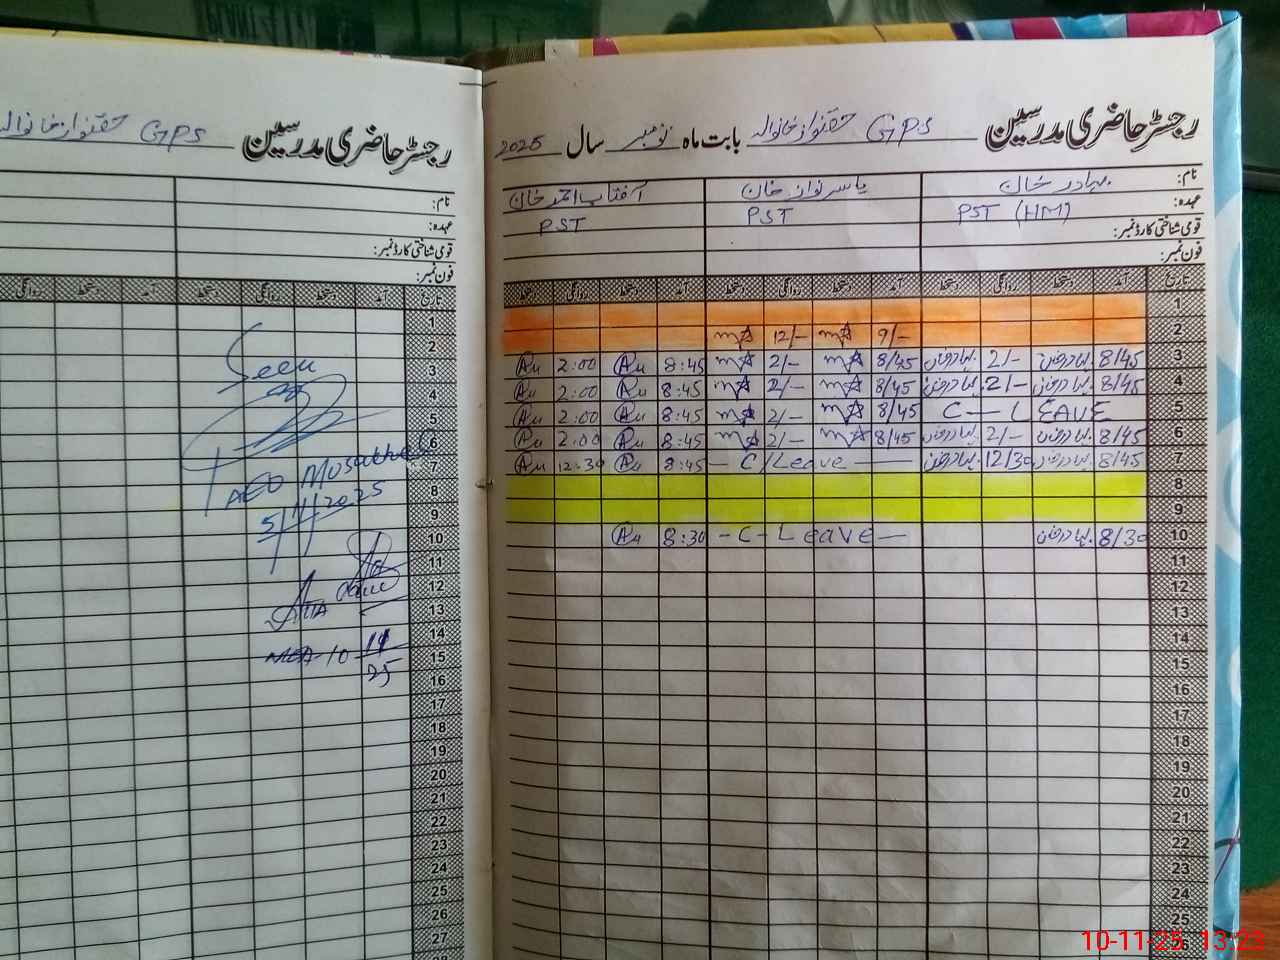 رجسٹر حاضری مدرسین GPS حقنواز خانوالہ بابت ماہ نومبر سال 2025
نام: بہادر خان یاسر نواز خان آفتاب احمد خان
عہدہ: PST (HM) PST PST
قومی شناختی کارڈ نمبر:
فون نمبر:
تاریخ آمد دستخط روانگی دستخط آمد دستخط روانگی دستخط آمد دستخط روانگی دستخط
1
2 9/- 12/-
3 8/45 بہادر خان 2/- بہادر خان 8/45 2/- 8:45 2:00
4 8/45 بہادر خان 2/- بہادر خان 8/45 2/- 8:45 2:00
5 C — LEAVE 8/45 2/- 8:45 2:00
6 8/45 بہادر خان 2/- بہادر خان 8/45 2/- 8:45 2:00
7 8/45 بہادر خان 12/30 بہادر خان — C/Leave — 8:45 12:30
8
9
10 8/30 بہادر خان - C - Leave — 8:30
11
12
13
14
15
16
17
18
19
20
21
22
23
24
25
رجسٹر حاضری مدرسین GPS حقنواز خانوالہ
نام:
عہدہ:
قومی شناختی کارڈ نمبر:
فون نمبر:
تاریخ آمد دستخط روانگی دستخط آمد دستخط روانگی
1
2
3 Seen
4
5
6
7 AEO
8
9 5/11/2025
10
11
12
13
14
15 MEA 10 11
16 25
17
18
19
20
21
22
23
24
25
26
27
10-11-25 13:23